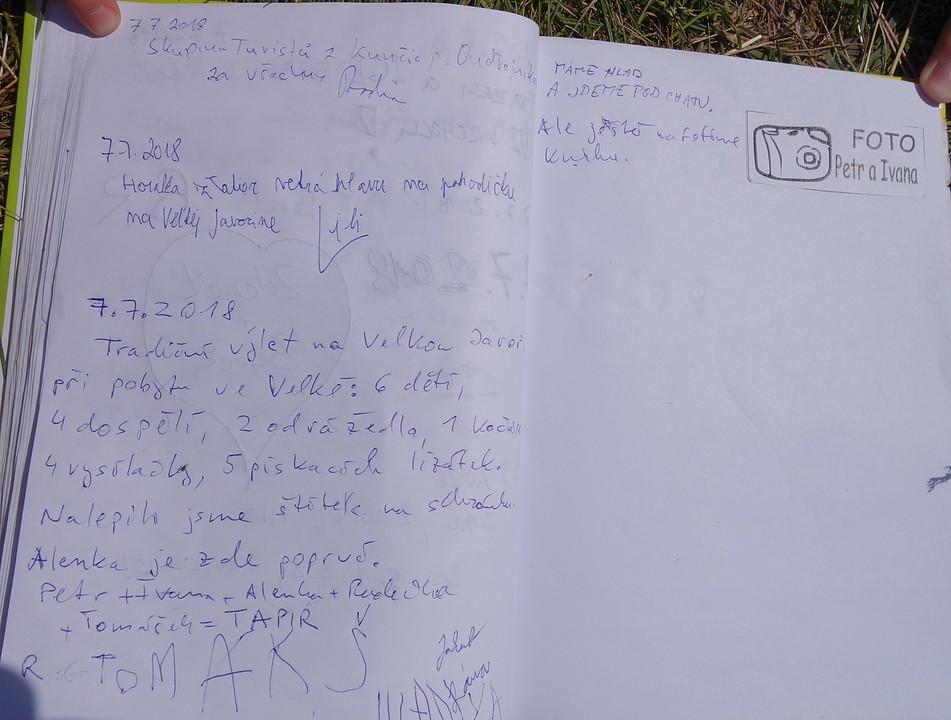 7.7.2018
Skupina Turistů z Kunčic p. Ondřejník
za všechny
7.7.2018
Horálka z Tábor nebrá hlavu na pohodičku
na Velkej Javorine
7.7.2018
Tradiční výlet na Velkou Javoř
při pobytu ve Velké: 6 dětí,
4 dospělí, 2 odrážedla, 1 kočár
4 vysílačky, 5 pískacích lízátek.
Nalepili jsme štítek na schránku.
Alenka je zde poprvé.
Petr + Ivana + Alenka +
+ Tomášek = TAPIR
TOMAKS
Jakub
MÁME HLAD
A JDEME POD CHATU.
Ale ještě nafotíme
knihu.
FOTO
Petr a Ivana